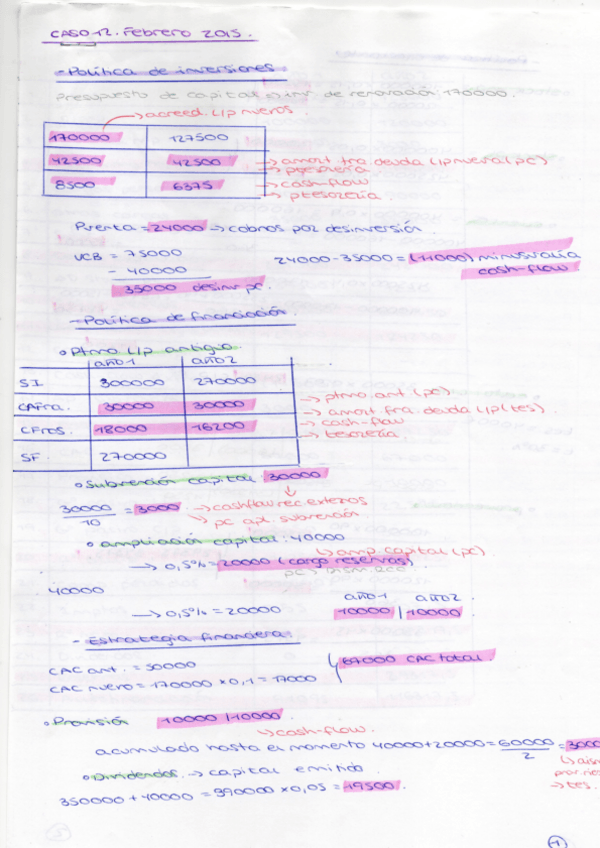 CASO 12. Febrero 2015.
- Política de inversiones:
Presupuesto de capital → inv. de renovación: 170000.
→ acreed. L/p nueros.
170000 127500
42500 42500 → amort. fra. deuda L/p nueva (pc)
→ ptesorería
8500 6375 → cash-flow
→ ptesorería.
Pventa = 24000 → cobros por desinversión.
VCB = 75000
- 40000
35000 desinv pc.
24000 - 35000 = (-11000) minusvalía
cash-flow
- Política de financiación.
• Ptmo L/p antiguo.
año 1 año 2
S.I. 300000 270000
CAFra. 30000 30000 → ptmo. ant (pc)
→ amort. fra. deuda L/p (tes).
CFros. 18000 16200 → cash-flow
→ tesorería.
SF. 270000
• Subvención capital: 30000
30000/10 = 3000. → cashflow rec. externos
→ pc apl. subvención
• ampliación capital: 40000
→ amp. capital (pc)
→ 0,5% = 20000 (cargo reservas)
40000
año 1 año 2
→ 0,5% = 20000 10000 | 10000
- Estrategia financiera:
CAC ant. = 50000
67000 CAC total.
CAC nuevo = 170000 x 0,1 = 17000
• Provisión 10000 | 10000
→ cash-flow.
acumulado hasta el momento 40000 + 20000 = 60000/2 = 3000
• Dividendos. → capital emitido.
350000 + 40000 = 390000 x 0,05 = 19500.
→ tes.
1